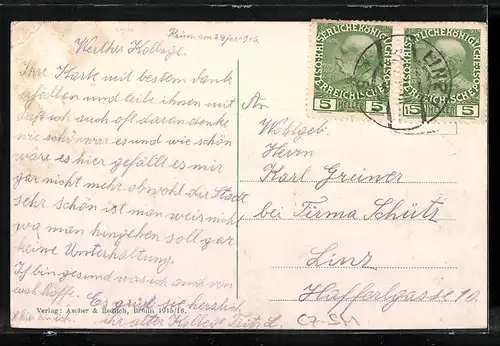 Brünn am 24/12 1916
Werther Kollege.
Ihre Karte mit bestem dank
erhalten und teile ihnen mit
daß ich auch oft daran denke
wie schön war es und wie schön
wäre es hier gefällt es mir
gar nicht mehr obwohl die Stadt
sehr schön ist man weis nicht
wo man hingehen soll gar
keine Unterhaltung.
Ich bin gesund was ich auch von
euch hoffe. Es grüst sie herzlich
ihr alter Kollege Fritz L.
Verlag: Ascher & Redlich, Brünn 1915/16.
KAISERLICHE KÖNIGLICHE
ÖSTERREICHISCHE
5 HELLER 5
5 HELLER 5
LINZ
An
Wohlgeb.
Herrn
Karl Greiner
bei Firma Schütz
Linz
Hafferlgasse 10.